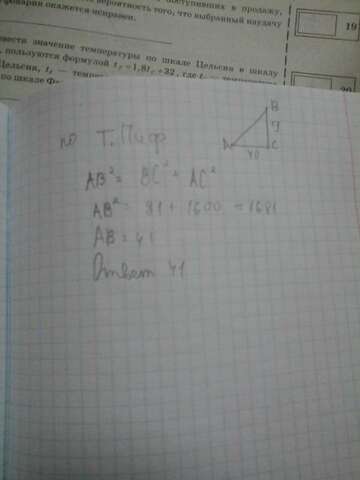 поступивших в продажу,
вероятность того, что выбранный наудачу
фонарик окажется исправен.
19
значение температуры по шкале Цельсия в шкалу
пользуются формулой t_F = 1,8t_C + 32, где t_C — температура
Цельсия, t_F —
по шкале
20
по Т. Пиф
B
9
A
40
C
AB² = BC² + AC²
AB² = 81 + 1600 = 1681
AB = 41
Ответ 41